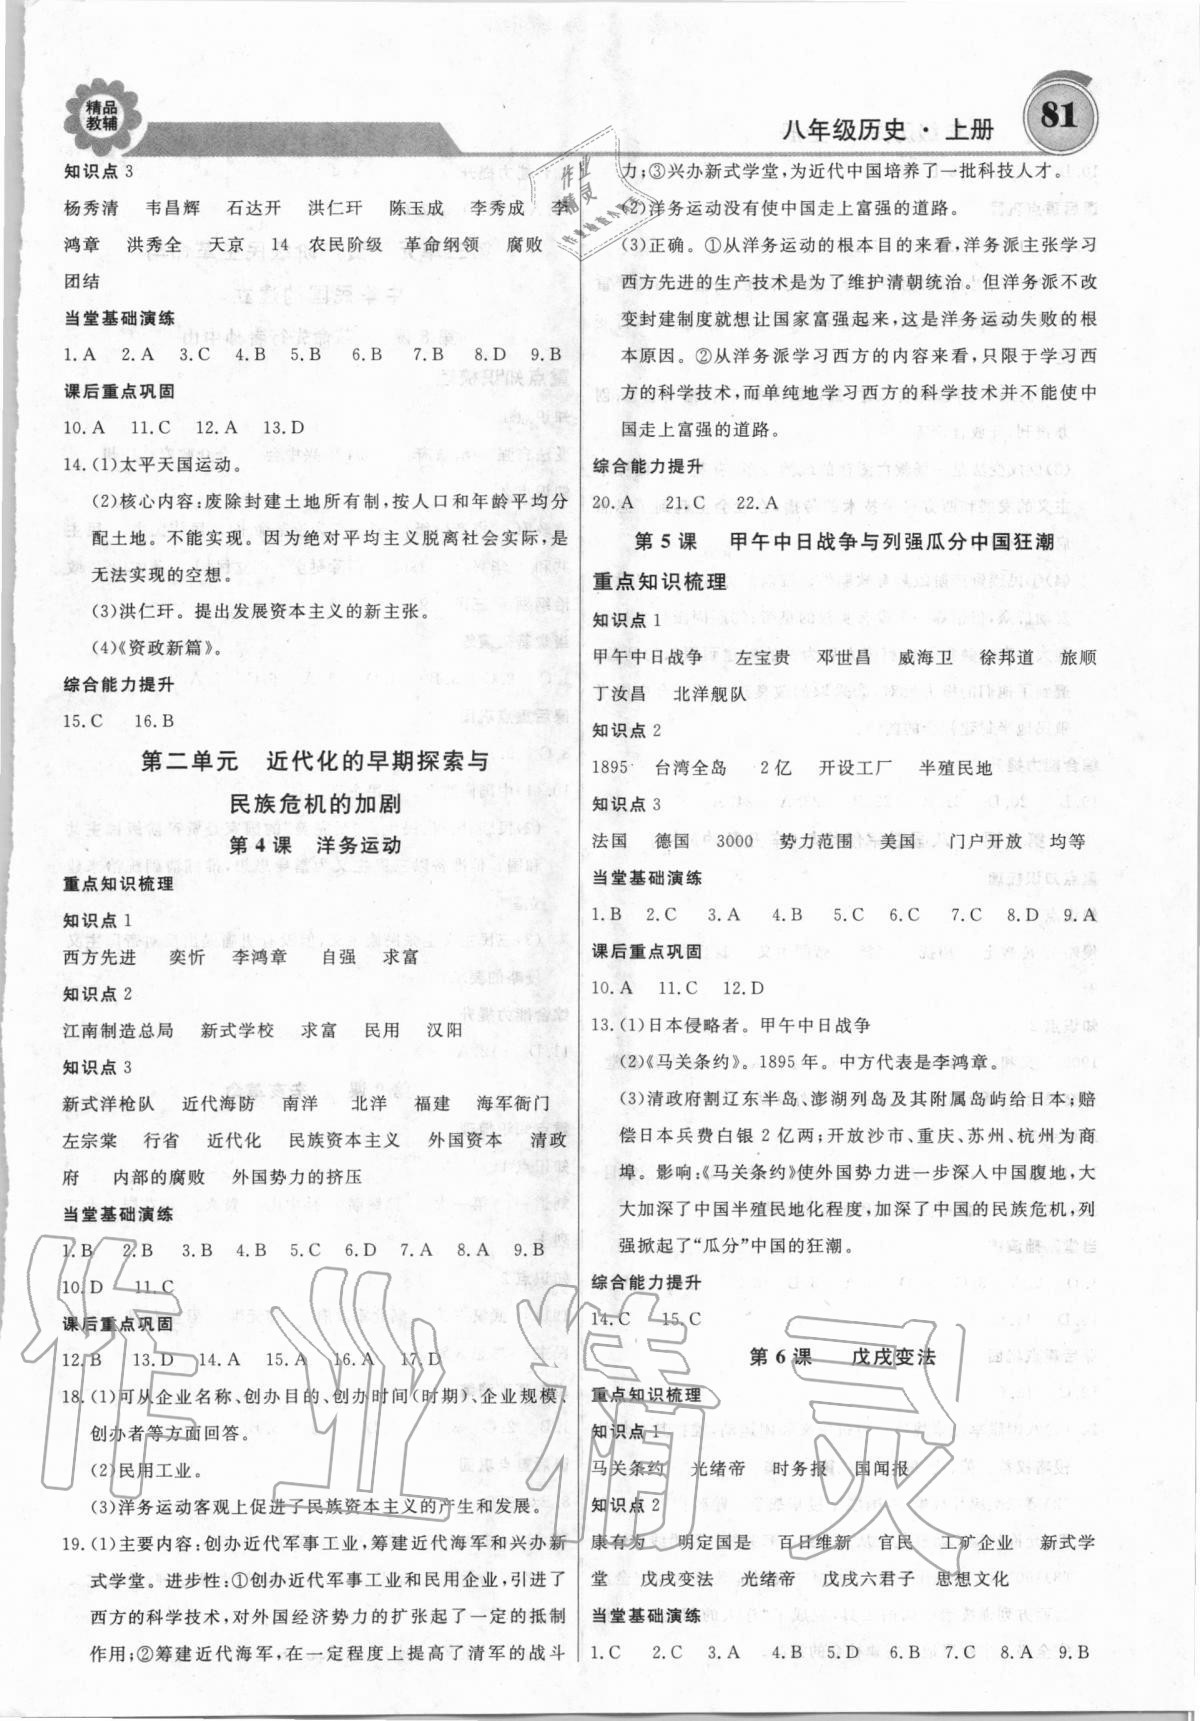 精品
教辅
八年级历史·上册
81
知识点3
杨秀清 韦昌辉 石达开 洪仁玕 陈玉成 李秀成 李
鸿章 洪秀全 天京 14 农民阶级 革命纲领 腐败
团结
当堂基础演练
1.A 2.A 3.C 4.B 5.B 6.B 7.B 8.D 9.B
课后重点巩固
10.A 11.C 12.A 13.D
14.(1)太平天国运动。
(2)核心内容:废除封建土地所有制,按人口和年龄平均分
配土地。不能实现。因为绝对平均主义脱离社会实际,是
无法实现的空想。
(3)洪仁玕。提出发展资本主义的新主张。
(4)《资政新篇》。
综合能力提升
15.C 16.B
第二单元 近代化的早期探索与
民族危机的加剧
第4课 洋务运动
重点知识梳理
知识点1
西方先进 奕忻 李鸿章 自强 求富
知识点2
江南制造总局 新式学校 求富 民用 汉阳
知识点3
新式洋枪队 近代海防 南洋 北洋 福建 海军衙门
左宗棠 行省 近代化 民族资本主义 外国资本 清政
府 内部的腐败 外国势力的挤压
当堂基础演练
1.B 2.B 3.C 4.B 5.D 6.D 7.A 8.A 9.B
10.D 11.C
课后重点巩固
12.B 13.D 14.A 15.A 16.A 17.D
18.(1)可从企业名称、创办目的、创办时间(时期)、企业规模、
创办者等方面回答。
(2)民用工业。
(3)洋务运动客观上促进了民族资本主义的产生和发展。
19.(1)主要内容:创办近代军事工业,筹建近代海军和兴办新
式学堂。进步性:①创办近代军事工业和民用企业,引进了
西方的科学技术,对外国经济势力的扩张起了一定的抵制
作用;②筹建近代海军,在一定程度上提高了清军的战斗
力;③兴办新式学堂,为近代中国培养了一批科技人才。
(2)洋务运动没有使中国走上富强的道路。
(3)正确。①从洋务运动的根本目的来看,洋务派主张学习
西方先进的生产技术是为了维护清朝统治。但洋务派不改
变封建制度就想让国家富强起来,这是洋务运动失败的根
本原因。②从洋务派学习西方的内容来看,只限于学习西
方的科学技术,而单纯地学习西方的科学技术并不能使中
国走上富强的道路。
综合能力提升
20.A 21.C 22.A
第5课 甲午中日战争与列强瓜分中国狂潮
重点知识梳理
知识点1
甲午中日战争 左宝贵 邓世昌 威海卫 徐邦道 旅顺
丁汝昌 北洋舰队
知识点2
1895 台湾全岛 2亿 开设工厂 半殖民地
知识点3
法国 德国 3000 势力范围 美国 门户开放 均等
当堂基础演练
1.B 2.C 3.A 4.B 5.B 6.C 7.C 8.D 9.A
课后重点巩固
10.A 11.C 12.D
13.(1)日本侵略者。甲午中日战争
(2)《马关条约》。1895年。中方代表是李鸿章。
(3)清政府割辽东半岛、澎湖列岛及其附属岛屿给日本;赔
偿日本兵费白银2亿两;开放沙市、重庆、苏州、杭州为商
埠。影响:《马关条约》使外国势力进一步深入中国腹地,大
大加深了中国半殖民地化程度,加深了中国的民族危机,列
强掀起了“瓜分”中国的狂潮。
综合能力提升
14.C 15.C
第6课 戊戌变法
重点知识梳理
知识点1
马关条约 光绪帝 时务报 国闻报
知识点2
康有为 明定国是 百日维新 官民 工矿企业 新式学
堂 戊戌变法 光绪帝 戊戌六君子 思想文化
当堂基础演练
1.C 2.C 3.A 4.B 5.D 6.B 7.C 8.A 9.B
作业精灵